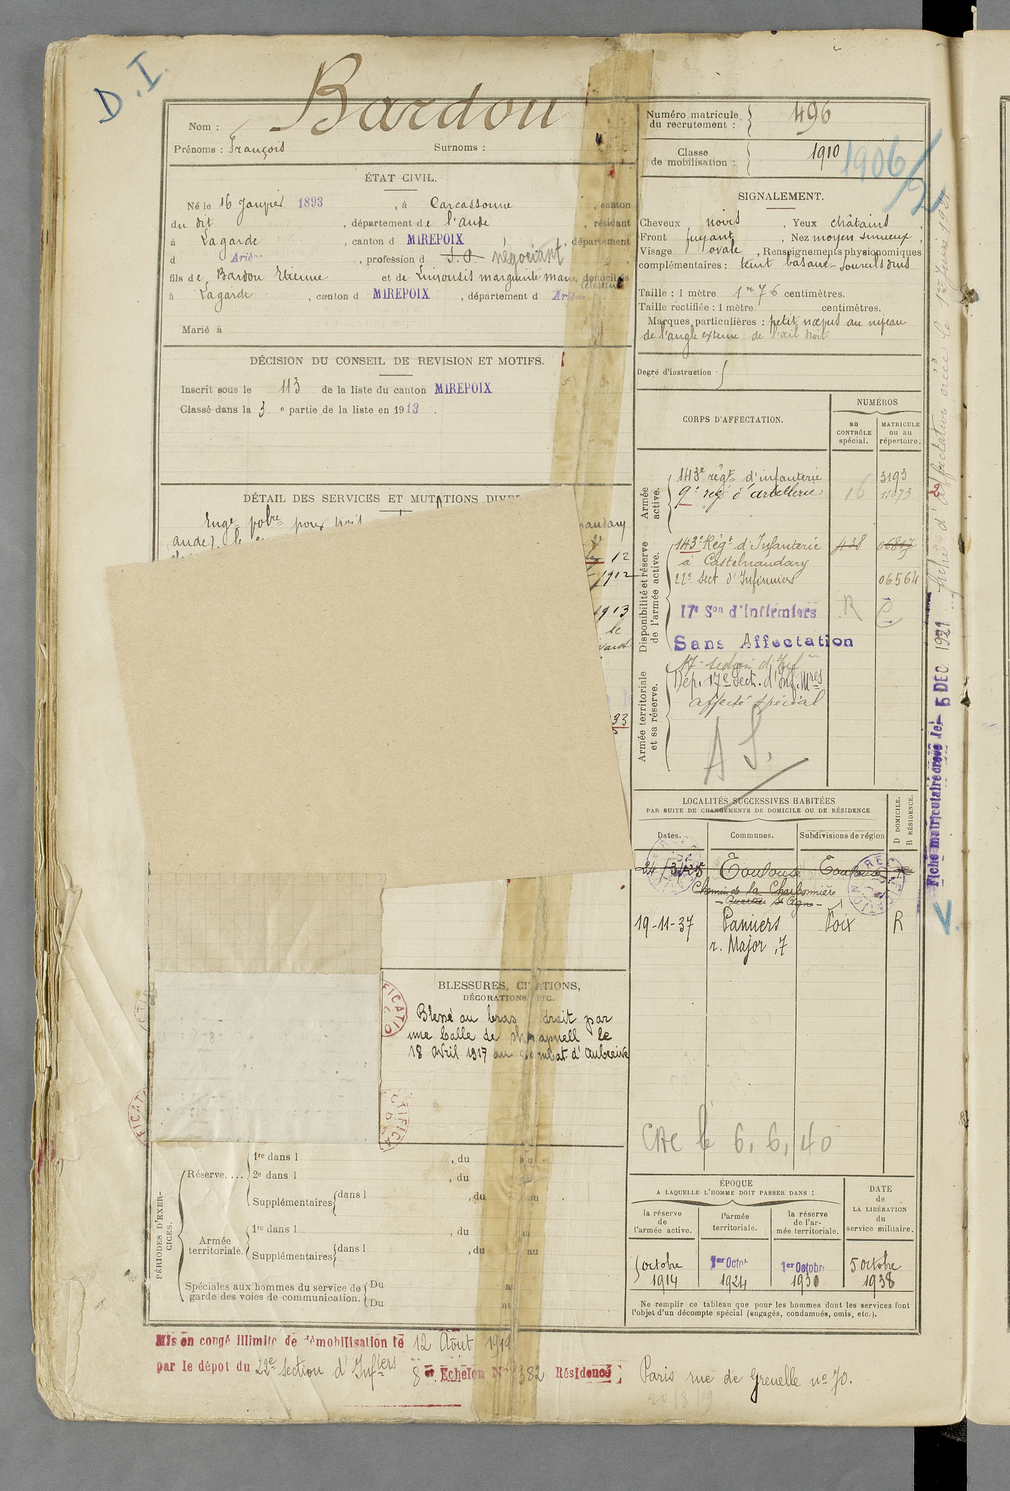 D.I.
Nom : Bardou
Prénoms : François Surnoms :
ÉTAT CIVIL.
Né le 16 Janvier 1893, à Carcassonne, canton
du dit, département de l'Aude, résidant
à Lagarde, canton d MIREPOIX, département
d Ariège, profession d S.P. négociant
fils de Bardou Etienne et de Limousis marguerite marie domiciliés
à Lagarde, canton d MIREPOIX, département d Ariège
Marié à
DÉCISION DU CONSEIL DE REVISION ET MOTIFS.
Inscrit sous le 113 de la liste du canton MIREPOIX
Classé dans la 3e partie de la liste en 1913.
DÉTAIL DES SERVICES ET MUTATIONS DIVER
Engé volre pour
12
1912
1913
le
33
BLESSURES, CITATIONS,
DÉCORATIONS, ETC.
Blessé au bras droit par
une balle de shrapnell le
18 avril 1917 au combat d'Auberive
PÉRIODES D'EXERCICES.
Réserve....
1re dans l , du au
2e dans l , du au
Supplémentaires dans l , du au
Armée territoriale.
1re dans l , du au
Supplémentaires dans l , du au
Spéciales aux hommes du service de garde des voies de communication. Du au
Du au
Mis en congé illimité de démobilisation le 12 Août 1919
par le dépot du 22e Section d'Infiers 8e Echelon No 382 Résidence :
Paris rue de Grenelle no 70.
Numéro matricule du recrutement : 496
Classe de mobilisation : 1910
1906/2
SIGNALEMENT.
Cheveux noirs, Yeux châtains
Front fuyant, Nez moyen sinueux
Visage ovale, Renseignements physionomiques
complémentaires : teint basané - sourcils drus
Taille : 1 mètre 1m76 centimètres.
Taille rectifiée : 1 mètre centimètres.
Marques particulières : petit nœpus au niveau
de l'angle externe de l'œil droit
Degré d'instruction :
CORPS D'AFFECTATION.
NUMÉROS
au CONTRÔLE spécial.
MATRICULE ou au répertoire.
Armée active.
143e régt d'infanterie 3193
9e reg d'artillerie 16 11073
Disponibilité et réserve de l'armée active.
143e Régt d'Infanterie 438 06817
à Castelnaudary
22e Sect d'Infirmiers 06564
17e Son d'Infirmiers R
Sans Affectation
Armée territoriale et sa réserve.
17e section d'Inf
Dép. 17e Sect. d'Inf.mres
affecté spécial
A S.
LOCALITÉS SUCCESSIVES HABITÉES
PAR SUITE DE CHANGEMENTS DE DOMICILE OU DE RÉSIDENCE
Dates. Communes. Subdivisions de région D DOMICILE. R RÉSIDENCE.
Toulouse Toulouse
Chemin de la Charbonnière
- Quartier St Agne -
19-11-37 Pamiers Foix R
r. Major, 7
6, 6, 40
ÉPOQUE
A LAQUELLE L'HOMME DOIT PASSER DANS :
DATE de LA LIBÉRATION du service militaire.
la réserve de l'armée active.
l'armée territoriale.
la réserve de l'armée territoriale.
octobre 1914
1er Octobre 1924
1er Octobre 1930
5 octobre 1938
Ne remplir ce tableau que pour les hommes dont les services font
l'objet d'un décompte spécial (engagés, condamnés, omis, etc.).
Fiche matriculaire créée le - 5 DEC 1921